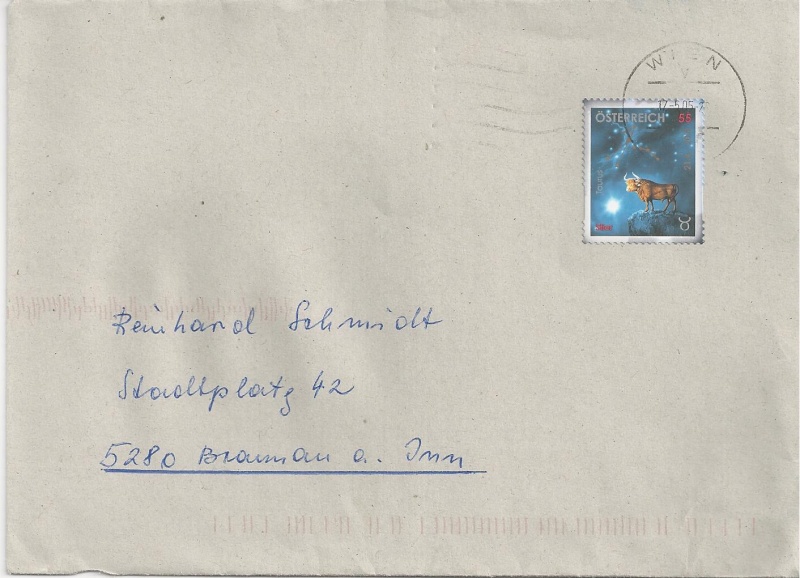 WIEN
V
12-5.05-
ÖSTERREICH 55
Taurus
Stier
Reinhard Schmidt
Stadtplatz 42
5280 Braunau a. Inn